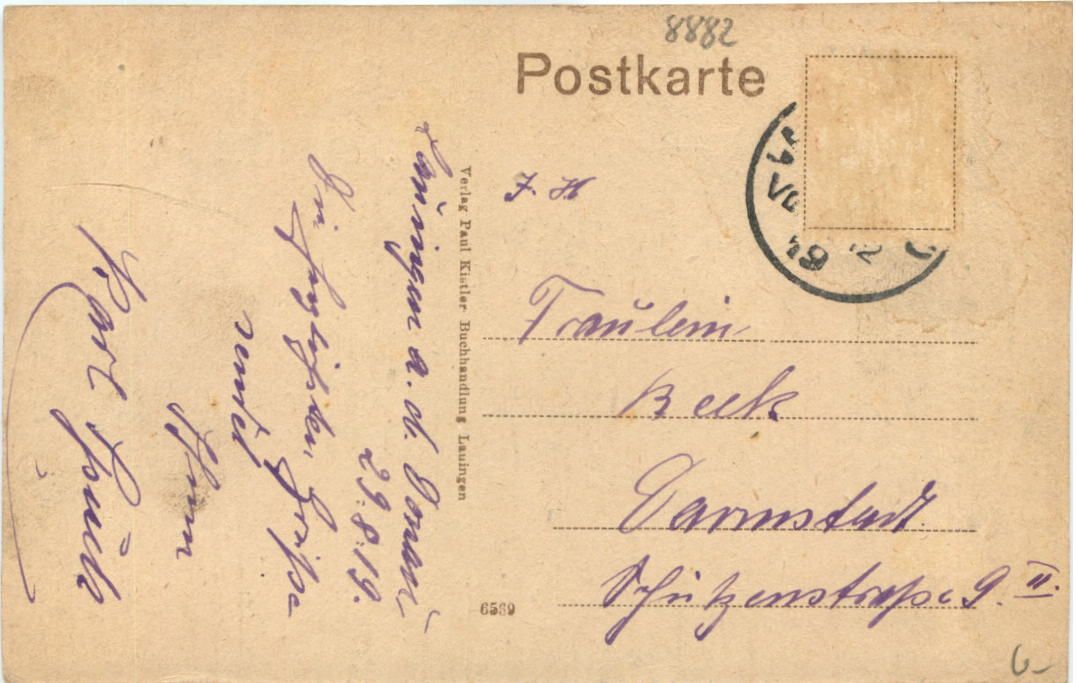 8882
Postkarte
Lauingen a. d. Donau
29.8.19.
Die herzlichsten Grüße
sendet
Ihnen
Karl
Verlag Paul Kistler Buchhandlung Lauingen
Fräulein
Beck
Darmstadt.
Schützenstraße 9 II.
6589